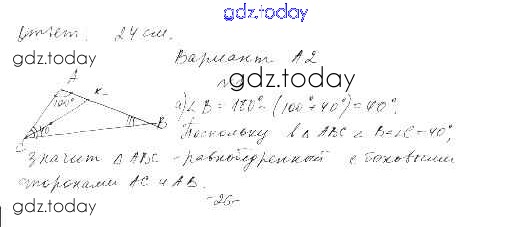 gdz.today
Ответ. 24 см.
gdz.today
Вариант А2
gdz.today
A K
100°
а) ∠B = 180° - (100° + 40°) = 40°.
40° B
Поскольку в Δ ABC ∠ B = ∠C = 40°,
C
значит Δ ABC - равнобедренный с боковыми
сторонами AC и AB.
gdz.today
-26-